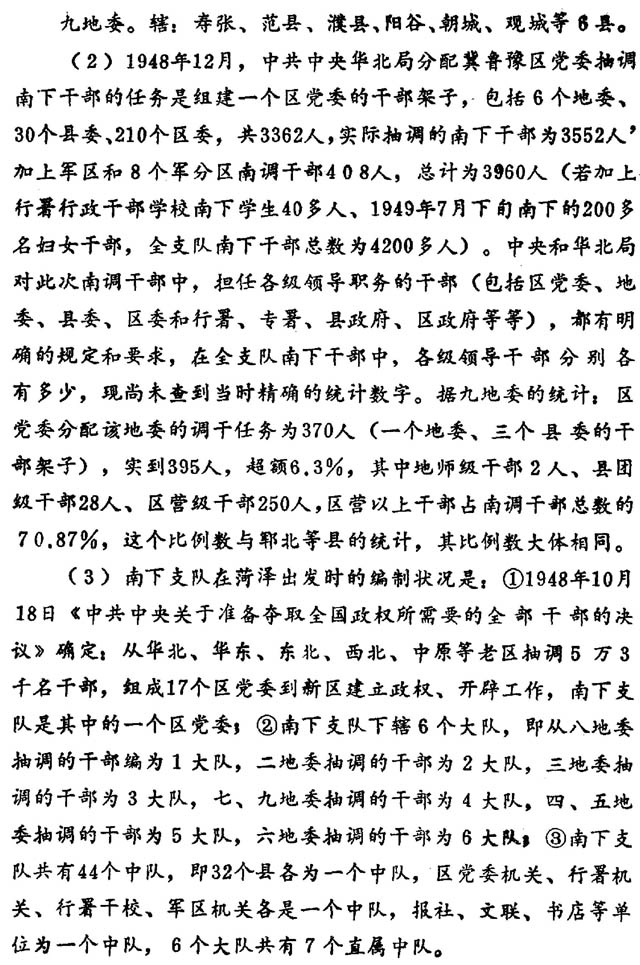 九地委。辖：寿张、范县、濮县、阳谷、朝城、观城等6县。
（2）1948年12月，中共中央华北局分配冀鲁豫区党委抽调
南下干部的任务是组建一个区党委的干部架子，包括6个地委、
30个县委、210个区委，共3362人，实际抽调的南下干部为3552人，
加上军区和8个军分区南调干部408人，总计为3960人（若加上
行署行政干部学校南下学生40多人、1949年7月下旬南下的200多
名妇女干部，全支队南下干部总数为4200多人）。中央和华北局
对此次南调干部中，担任各级领导职务的干部（包括区党委、地
委、县委、区委和行署、专署、县政府、区政府等等），都有明
确的规定和要求，在全支队南下干部中，各级领导干部分别各
有多少，现尚未查到当时精确的统计数字。据九地委的统计：区
党委分配该地委的调干任务为370人（一个地委、三个县委的干
部架子），实到395人，超额6.3%，其中地师级干部2人、县团
级干部28人、区营级干部250人，区营以上干部占南调干部总数的
70.87%，这个比例数与郓北等县的统计，其比例数大体相同。
（3）南下支队在菏泽出发时的编制状况是：①1948年10月
18日《中共中央关于准备夺取全国政权所需要的全部干部的决
议》确定：从华北、华东、东北、西北、中原等老区抽调5万3
千名干部，组成17个区党委到新区建立政权、开辟工作，南下支
队是其中的一个区党委；②南下支队下辖6个大队，即从八地委
抽调的干部编为1大队，二地委抽调的干部为2大队，三地委抽
调的干部为3大队，七、九地委抽调的干部为4大队，四、五地
委抽调的干部为5大队，六地委抽调的干部为6大队；③南下支
队共有44个中队，即32个县各为一个中队，区党委机关、行署机
关、行署干校、军区机关各是一个中队，报社、文联、书店等单
位为一个中队，6个大队共有7个直属中队。